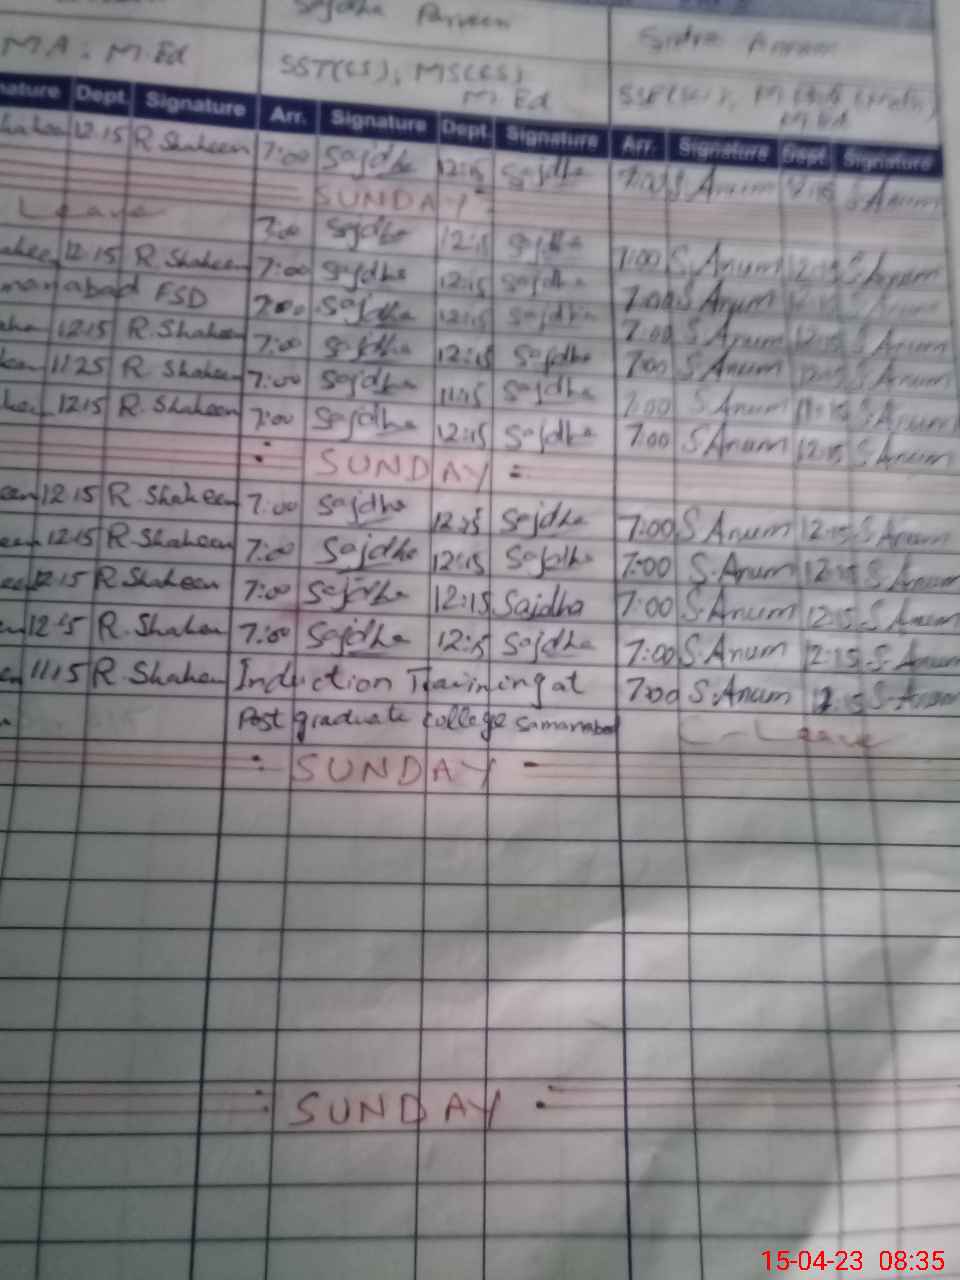 Sajdha Parveen
Sidra Anum
MA, M.Ed
SST(CS), MS(CS)
M.Ed
M.Ed
nature Dept. Signature Arr. Signature Dept. Signature Arr. Signature Dept. Signature
12:15 R. Shaheen 7:00 Sajdha 12:15 Sajdha 7:00 S.Anum 12:15 S.Anum
SUNDAY
Leave 7:00 Sajdha 12:15 Sajdha 7:00 S.Anum 12:15 S.Anum
12:15 R. Shaheen 7:00 Sajdha 12:15 Sajdha 7:00 S.Anum 12:15 S.Anum
manabad FSD 7:00 Sajdha 12:15 Sajdha 7:00 S.Anum 12:15 S.Anum
12:15 R. Shaheen 7:00 Sajdha 12:15 Sajdha 7:00 S.Anum 12:15 S.Anum
11:25 R. Shaheen 7:00 Sajdha 11:15 Sajdha 7:00 S.Anum 11:15 S.Anum
12:15 R. Shaheen 7:00 Sajdha 12:15 Sajdha 7:00 S.Anum 12:15 S.Anum
: SUNDAY :
12:15 R. Shaheen 7:00 Sajdha 12:15 Sajdha 7:00 S.Anum 12:15 S.Anum
12:15 R. Shaheen 7:00 Sajdha 12:15 Sajdha 7:00 S.Anum 12:15 S.Anum
12:15 R. Shaheen 7:00 Sajdha 12:15 Sajdha 7:00 S.Anum 12:15 S.Anum
12:15 R. Shaheen 7:00 Sajdha 12:15 Sajdha 7:00 S.Anum 12:15 S.Anum
11:15 R. Shaheen Induction Training at 7:00 S.Anum 12:15 S.Anum
Post graduate college Samanabad C-Leave
: SUNDAY -
: SUNDAY :
15-04-23 08:35